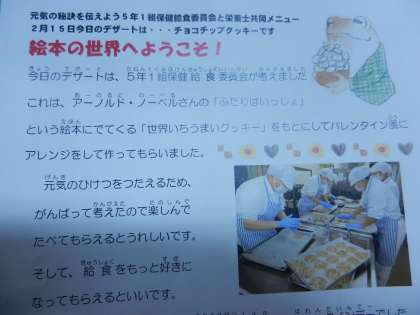 元気の秘訣を伝えよう５年１組保健給食委員会と栄養士共同メニュー
２月１５日今日のデザートは・・・チョコチップクッキーです
絵本の世界へようこそ！
今日のデザートは、５年１組保健給食委員会が考えました
これは、アーノルド・ノーベルさんの「ふたりはいっしょ」
という絵本にでてくる「世界いちうまいクッキー」をもとにしてバレンタイン風に
アレンジをして作ってもらいました。
元気のひけつをつたえるため、
がんばって考えたので楽しんで
たべてもらえるとうれしいです。
そして、給食をもっと好きに
なってもらえるといいです。